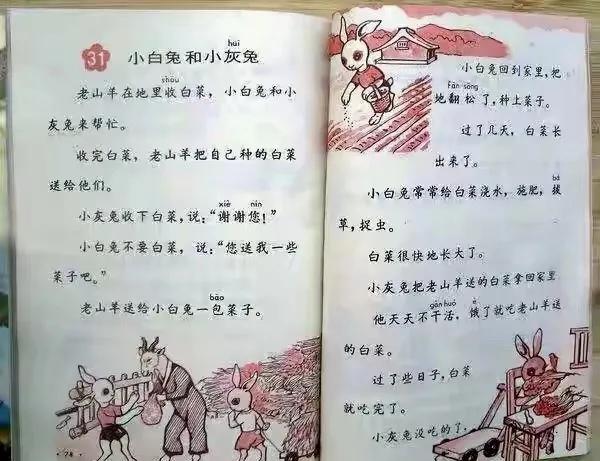 huī
31 小白兔和小灰兔
shōu
老山羊在地里收白菜，小白兔和小
灰兔来帮忙。
收完白菜，老山羊把自己种的白菜
送给他们。
xiè nín
小灰兔收下白菜，说：“谢谢您！”
小白兔不要白菜，说：“您送我一些
菜子吧。”
bāo
老山羊送给小白兔一包菜子。
·74
小白兔回到家里，把
fān sōng
地翻松了，种上菜子。
过了几天，白菜长
出来了。
bá
小白兔常常给白菜浇水，施肥，拔
草，捉虫。
白菜很快地长大了。
小灰兔把老山羊送的白菜拿回家里
gàn huó è
他天天不干活，饿了就吃老山羊送
的白菜。
过了些日子，白菜
就吃完了。
小灰兔没吃的了，